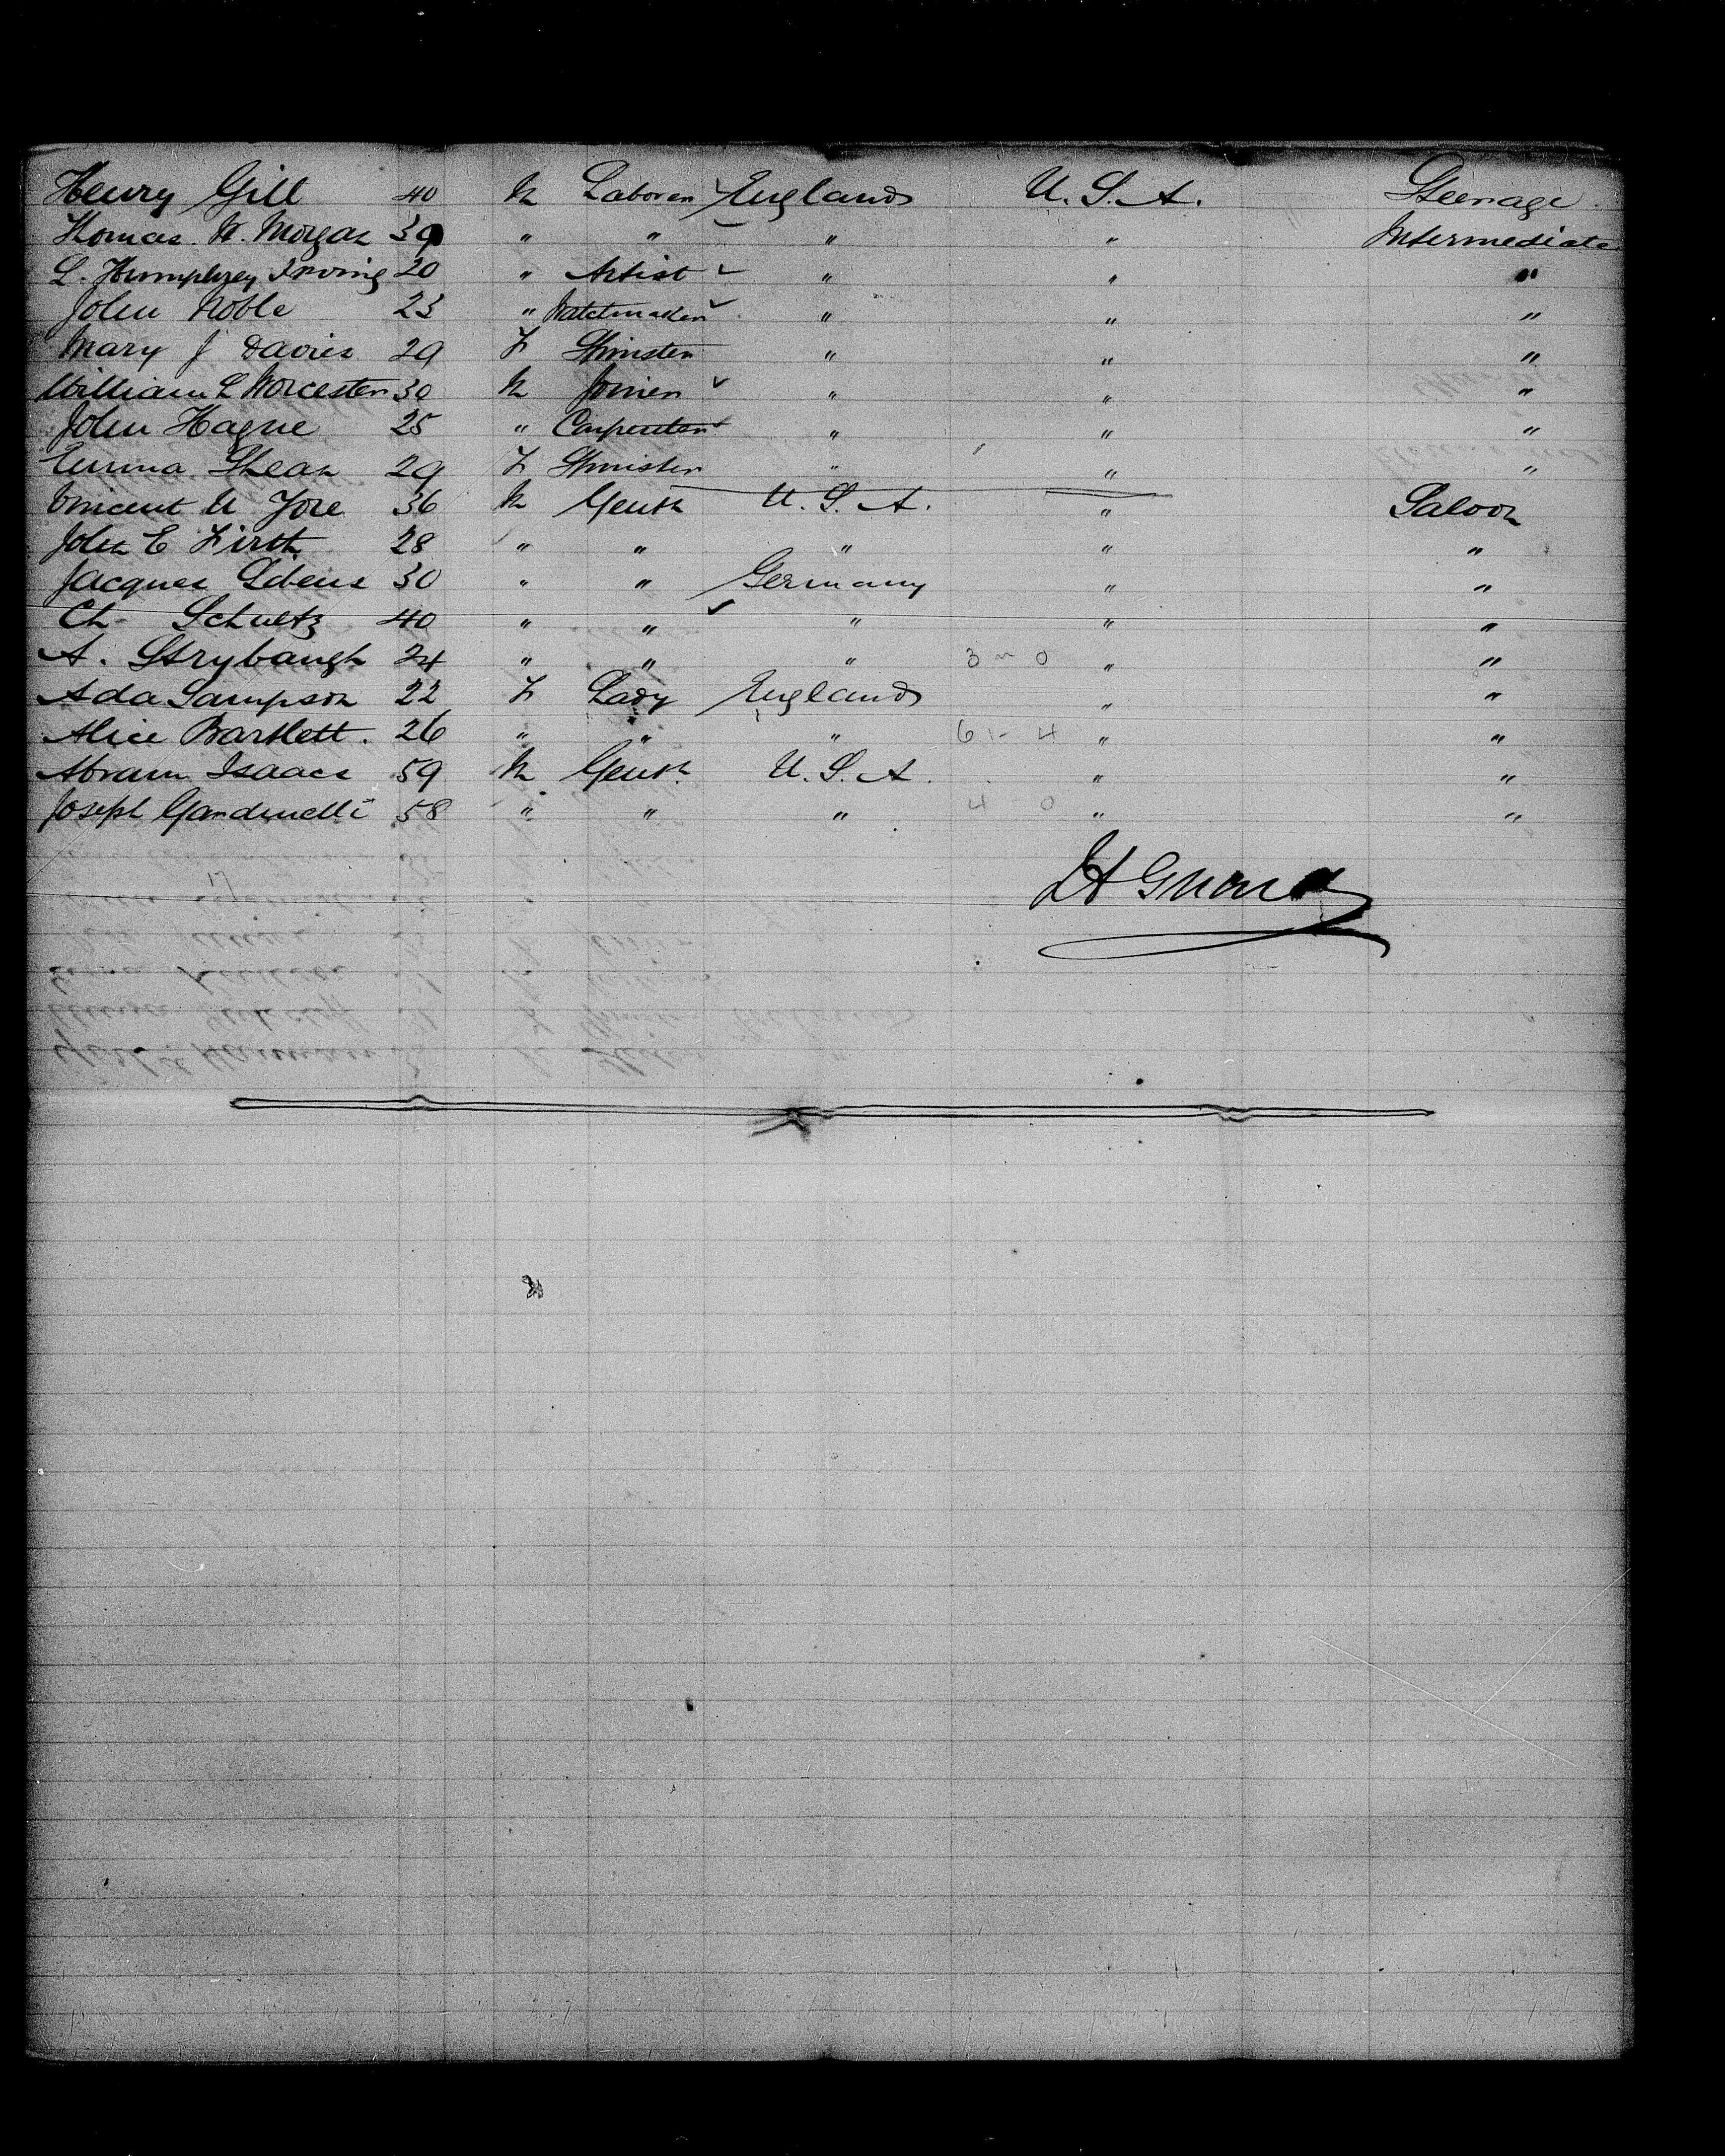 Henry Gill 40 M Laborer England U. S. A. Steerage
Thomas W. Morgan 39 " " " " Intermediate
L. Humphrey Irving 20 " Artist " " "
John Noble 23 " Watchmaker " " "
Mary J Davies 29 F Spinster " " "
William L Worcester 30 M Joiner " " "
John Hague 25 " Carpenter " " "
Emma Shean 29 F Spinster " " "
Vincent U Yore 36 M Gentn U. S. A. " Saloon
John E Firth 28 " " " " "
Jacques 30 " " Germany " "
Ch- Schultz 40 " " " " "
A. Strybaugh 24 " " " 3 - 0 " "
Ada Sampson 22 F Lady England " "
Alice Bartlett. 26 " " " 61 - 4 " "
Abram Isaacs 59 M Gentn U. S. A. " "
Joseph Gardinelli 58 " " " 4 - 0 " "
17